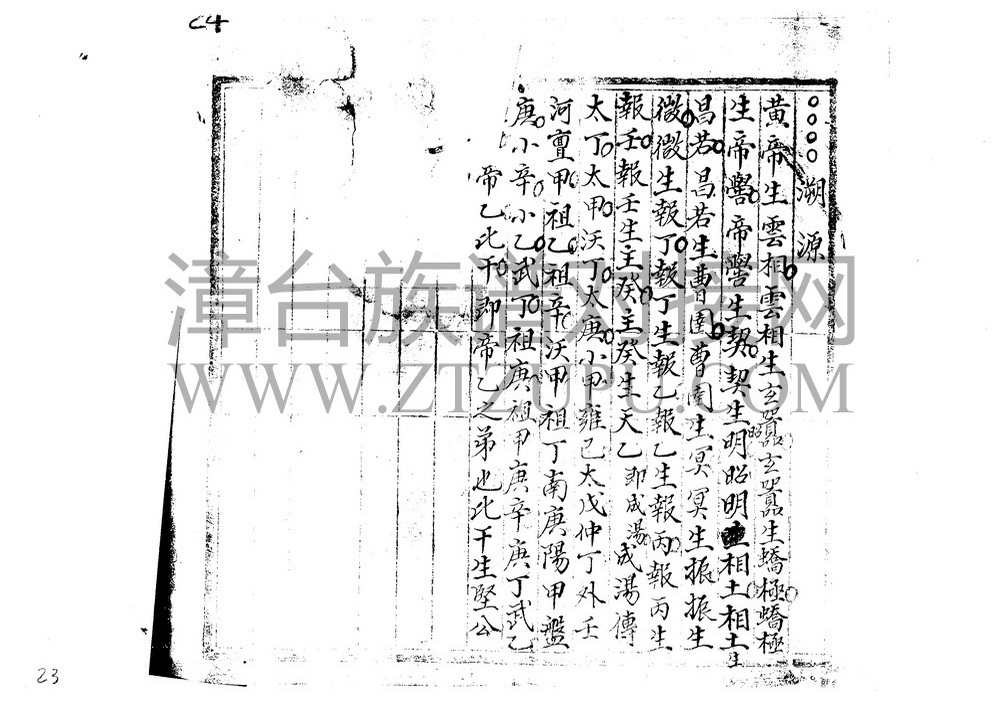 C4
溯源
黃帝生雲相雲相生玄囂玄囂生蟜極蟜極
生帝嚳帝嚳生契契生明昭明生相土相土生
昭
昌若昌若生曹圉曹圉生冥冥生振振生
微微生報丁報丁生報乙報乙生報丙報丙生
報壬報壬生主癸主癸生天乙即成湯成湯傳
太丁太甲沃丁太庚小甲雍己太戊仲丁外壬
河亶甲祖乙祖辛沃甲祖丁南庚陽甲盤
庚小辛小乙武丁祖庚祖甲庚辛庚丁武乙
帝乙比干即帝乙之弟也比干生堅公
漳台族谱对接网
WWW.ZTZUPU.COM
23